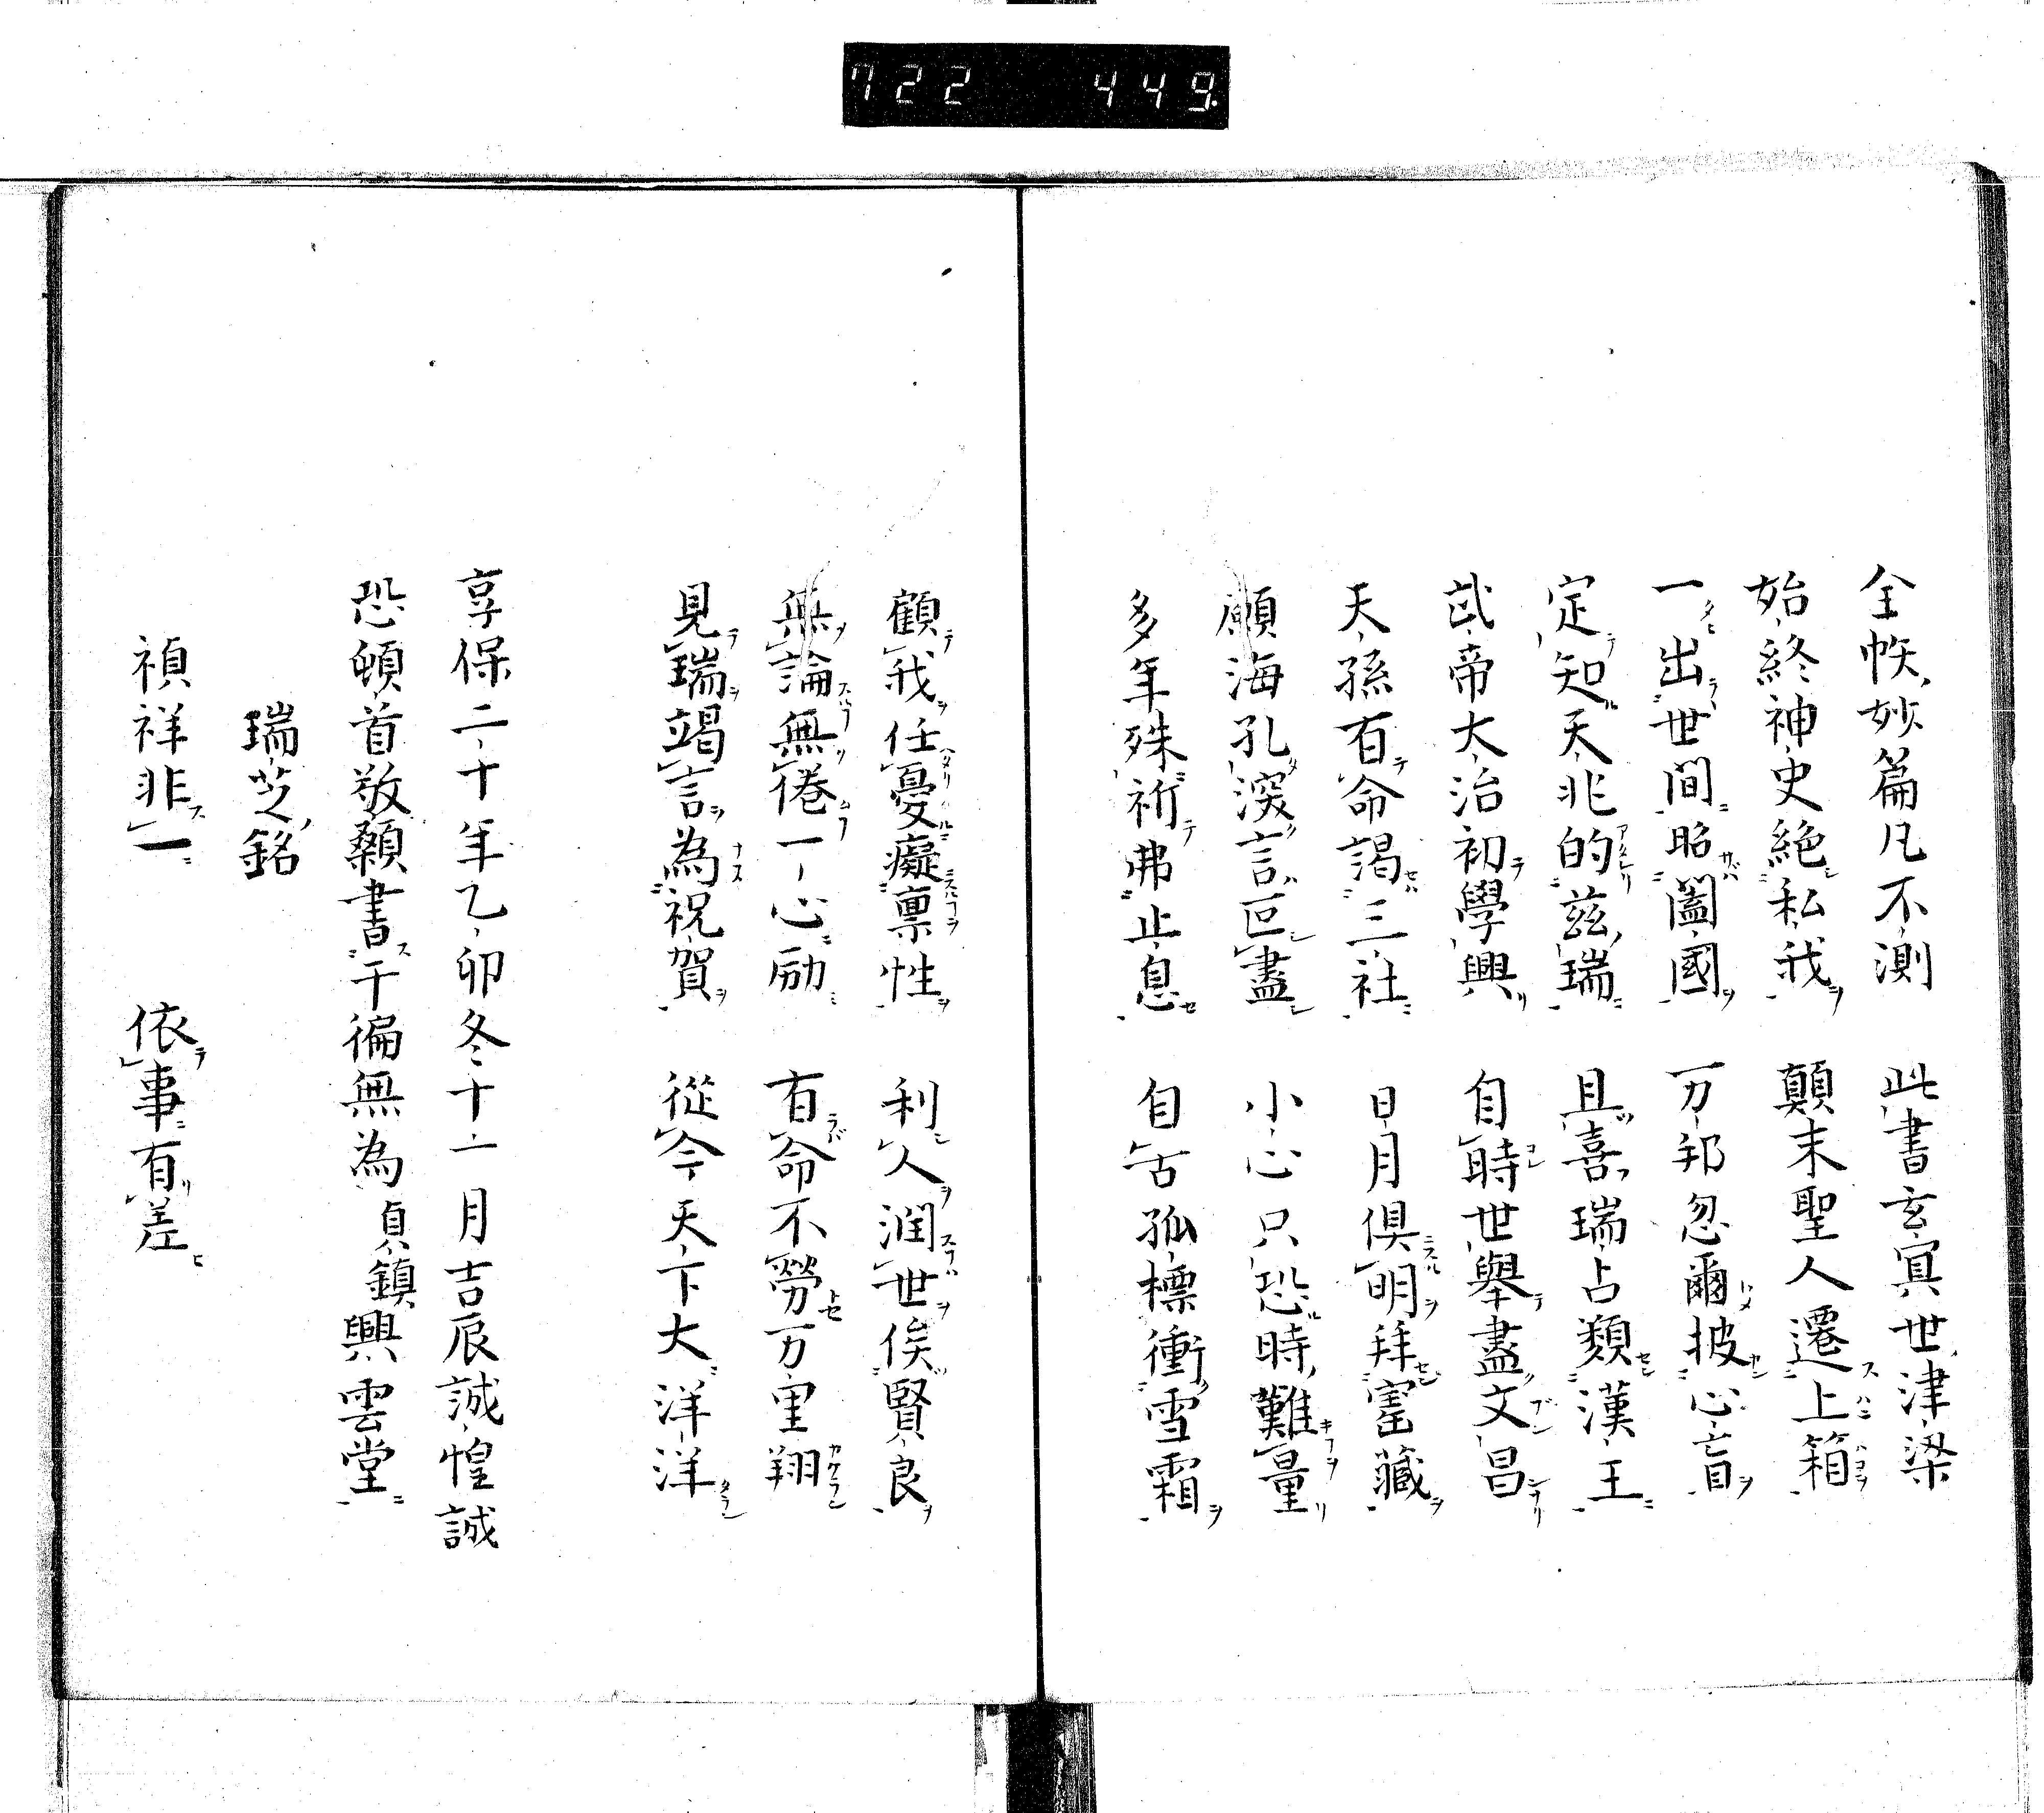 722 449.
全帙妙篇凡不測 此書玄冥世津梁
始終神史絶私我 顛末聖人遷上箱
一出世間昭闔國 万邦忽爾披心盲
定知天兆的兹瑞 且喜瑞占類漢王
武帝大治初學興 自時世舉盡文昌
天孫有命謁三社 日月倶明拜宻藏
願海孔深言叵盡 小心只恐時難量
多年殊祈弗止息 自古孤標衝雪霜
顧我任憂癡稟性 利人潤世俟賢良
無論無倦一心励 有命不勞万里翔
見瑞竭言為祝賀 從今天下大洋洋
享保二十年乙卯冬十一月吉辰誠惶誠
恐頓首敬顙書于徧無為貞鎮興雲堂
瑞芝銘
禎祥非一 依事有差